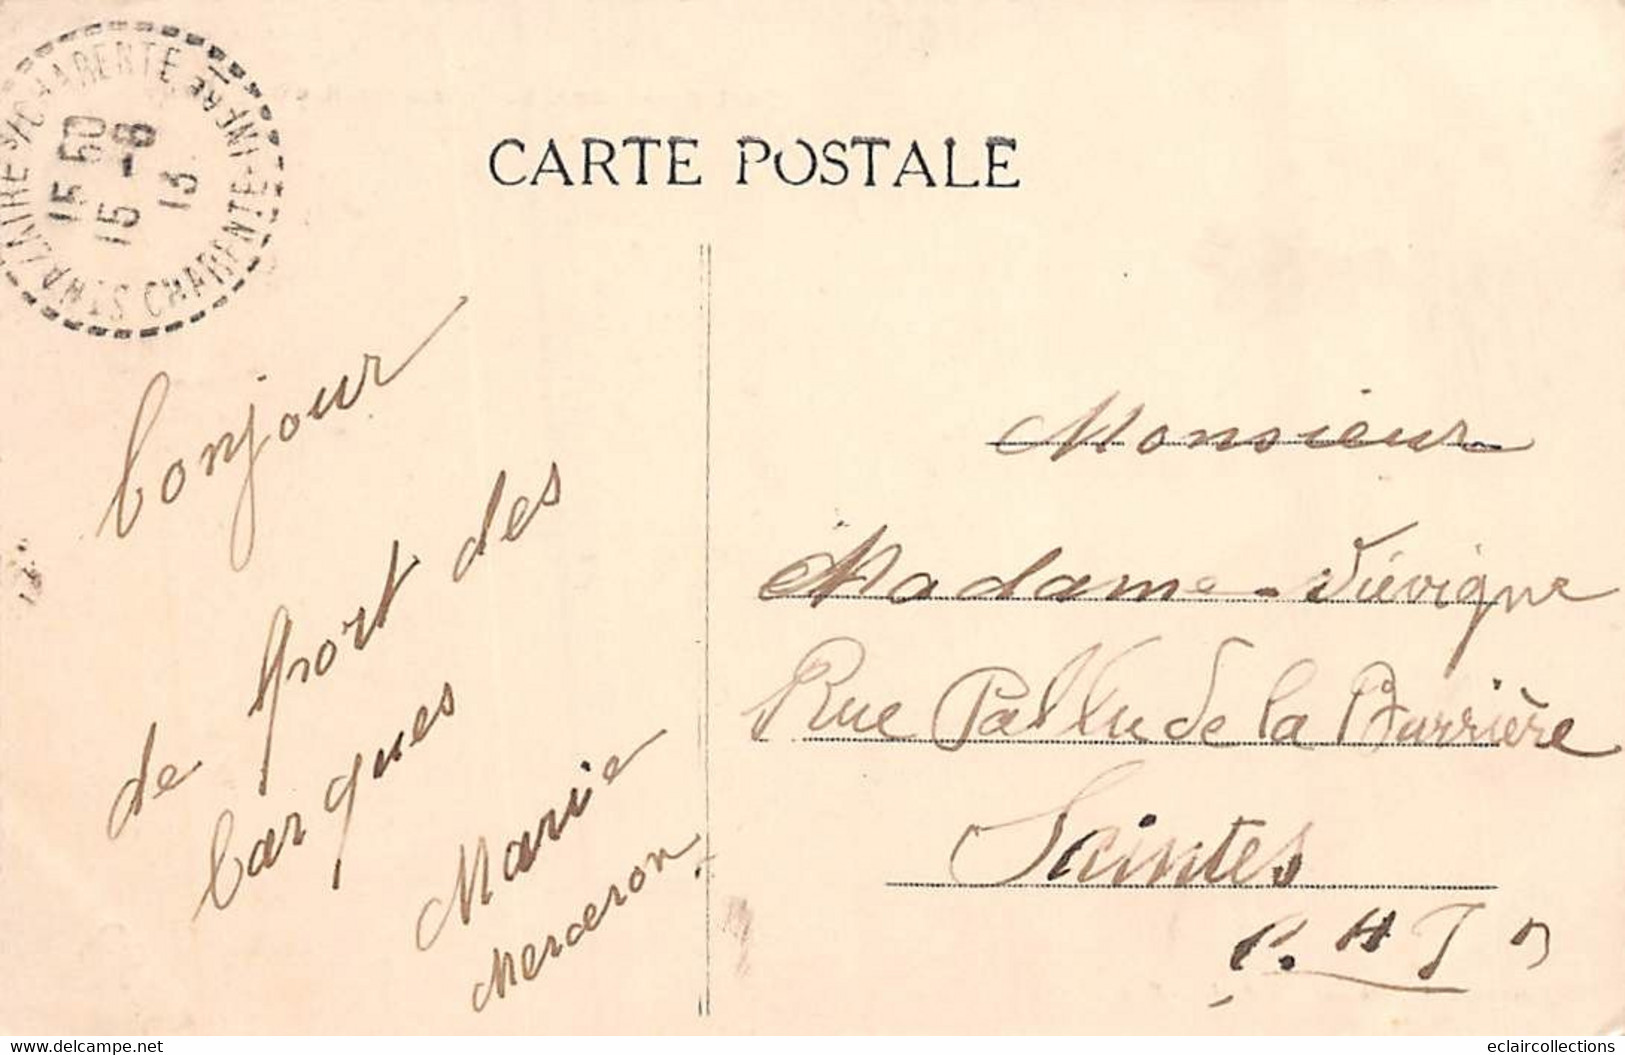 ST NAZAIRE S/CHARENTE
CHARENTE-INFRE
15 50
15 -8
13
CARTE POSTALE
bonjour
de port des
barques
Marie
Merceron
Monsieur
Madame Viévigne
Rue Pallu de la Barrière
Saintes
www.delcampe.net
eclaircollections